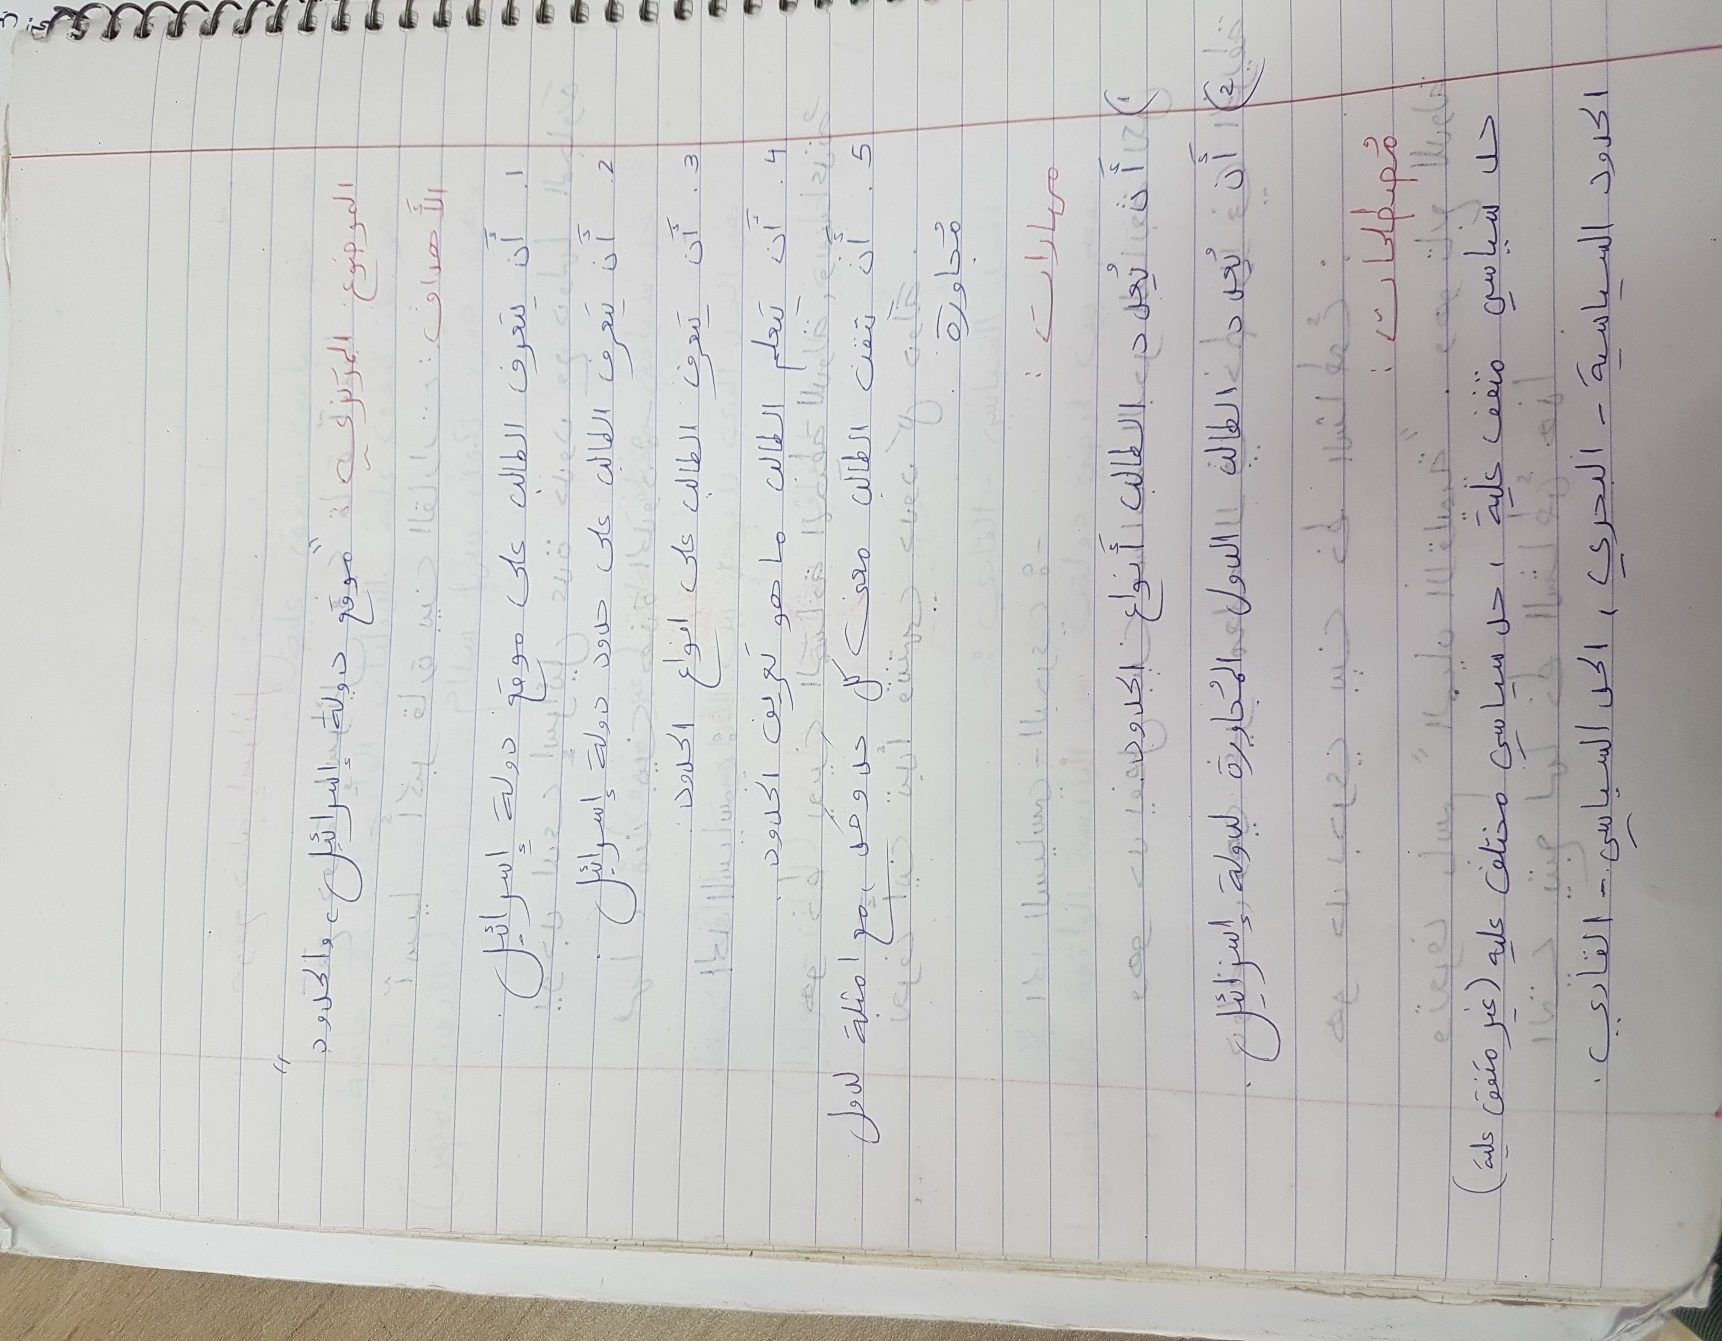 الموضوع المركزي: "موقع دولة إسرائيل، والحدود"
الأهداف:
1. أن يتعرف الطالب على موقع دولة إسرائيل
2. أن يتعرف الطالب على حدود دولة إسرائيل
3. أن يتعرف الطالب على انواع الحدود
4. أن يتعلم الطالب ما هو تعريف الحدود
5. أن يتقن الطالب معنى كل حد وحد، مع امثلة لدول
مجاورة.
مهارات:
1) أن يُعدد الطالب أنواع الحدود
2) أن يُعدد الطالب الدول المُجاورة لدولة إسرائيل.
مُصطلحات:
حد سياسي متفق عليه، حد سياسي مختلف عليه (غير متفق عليه)
الحدود السياسية - البحري، الحد السياسي - القاري.